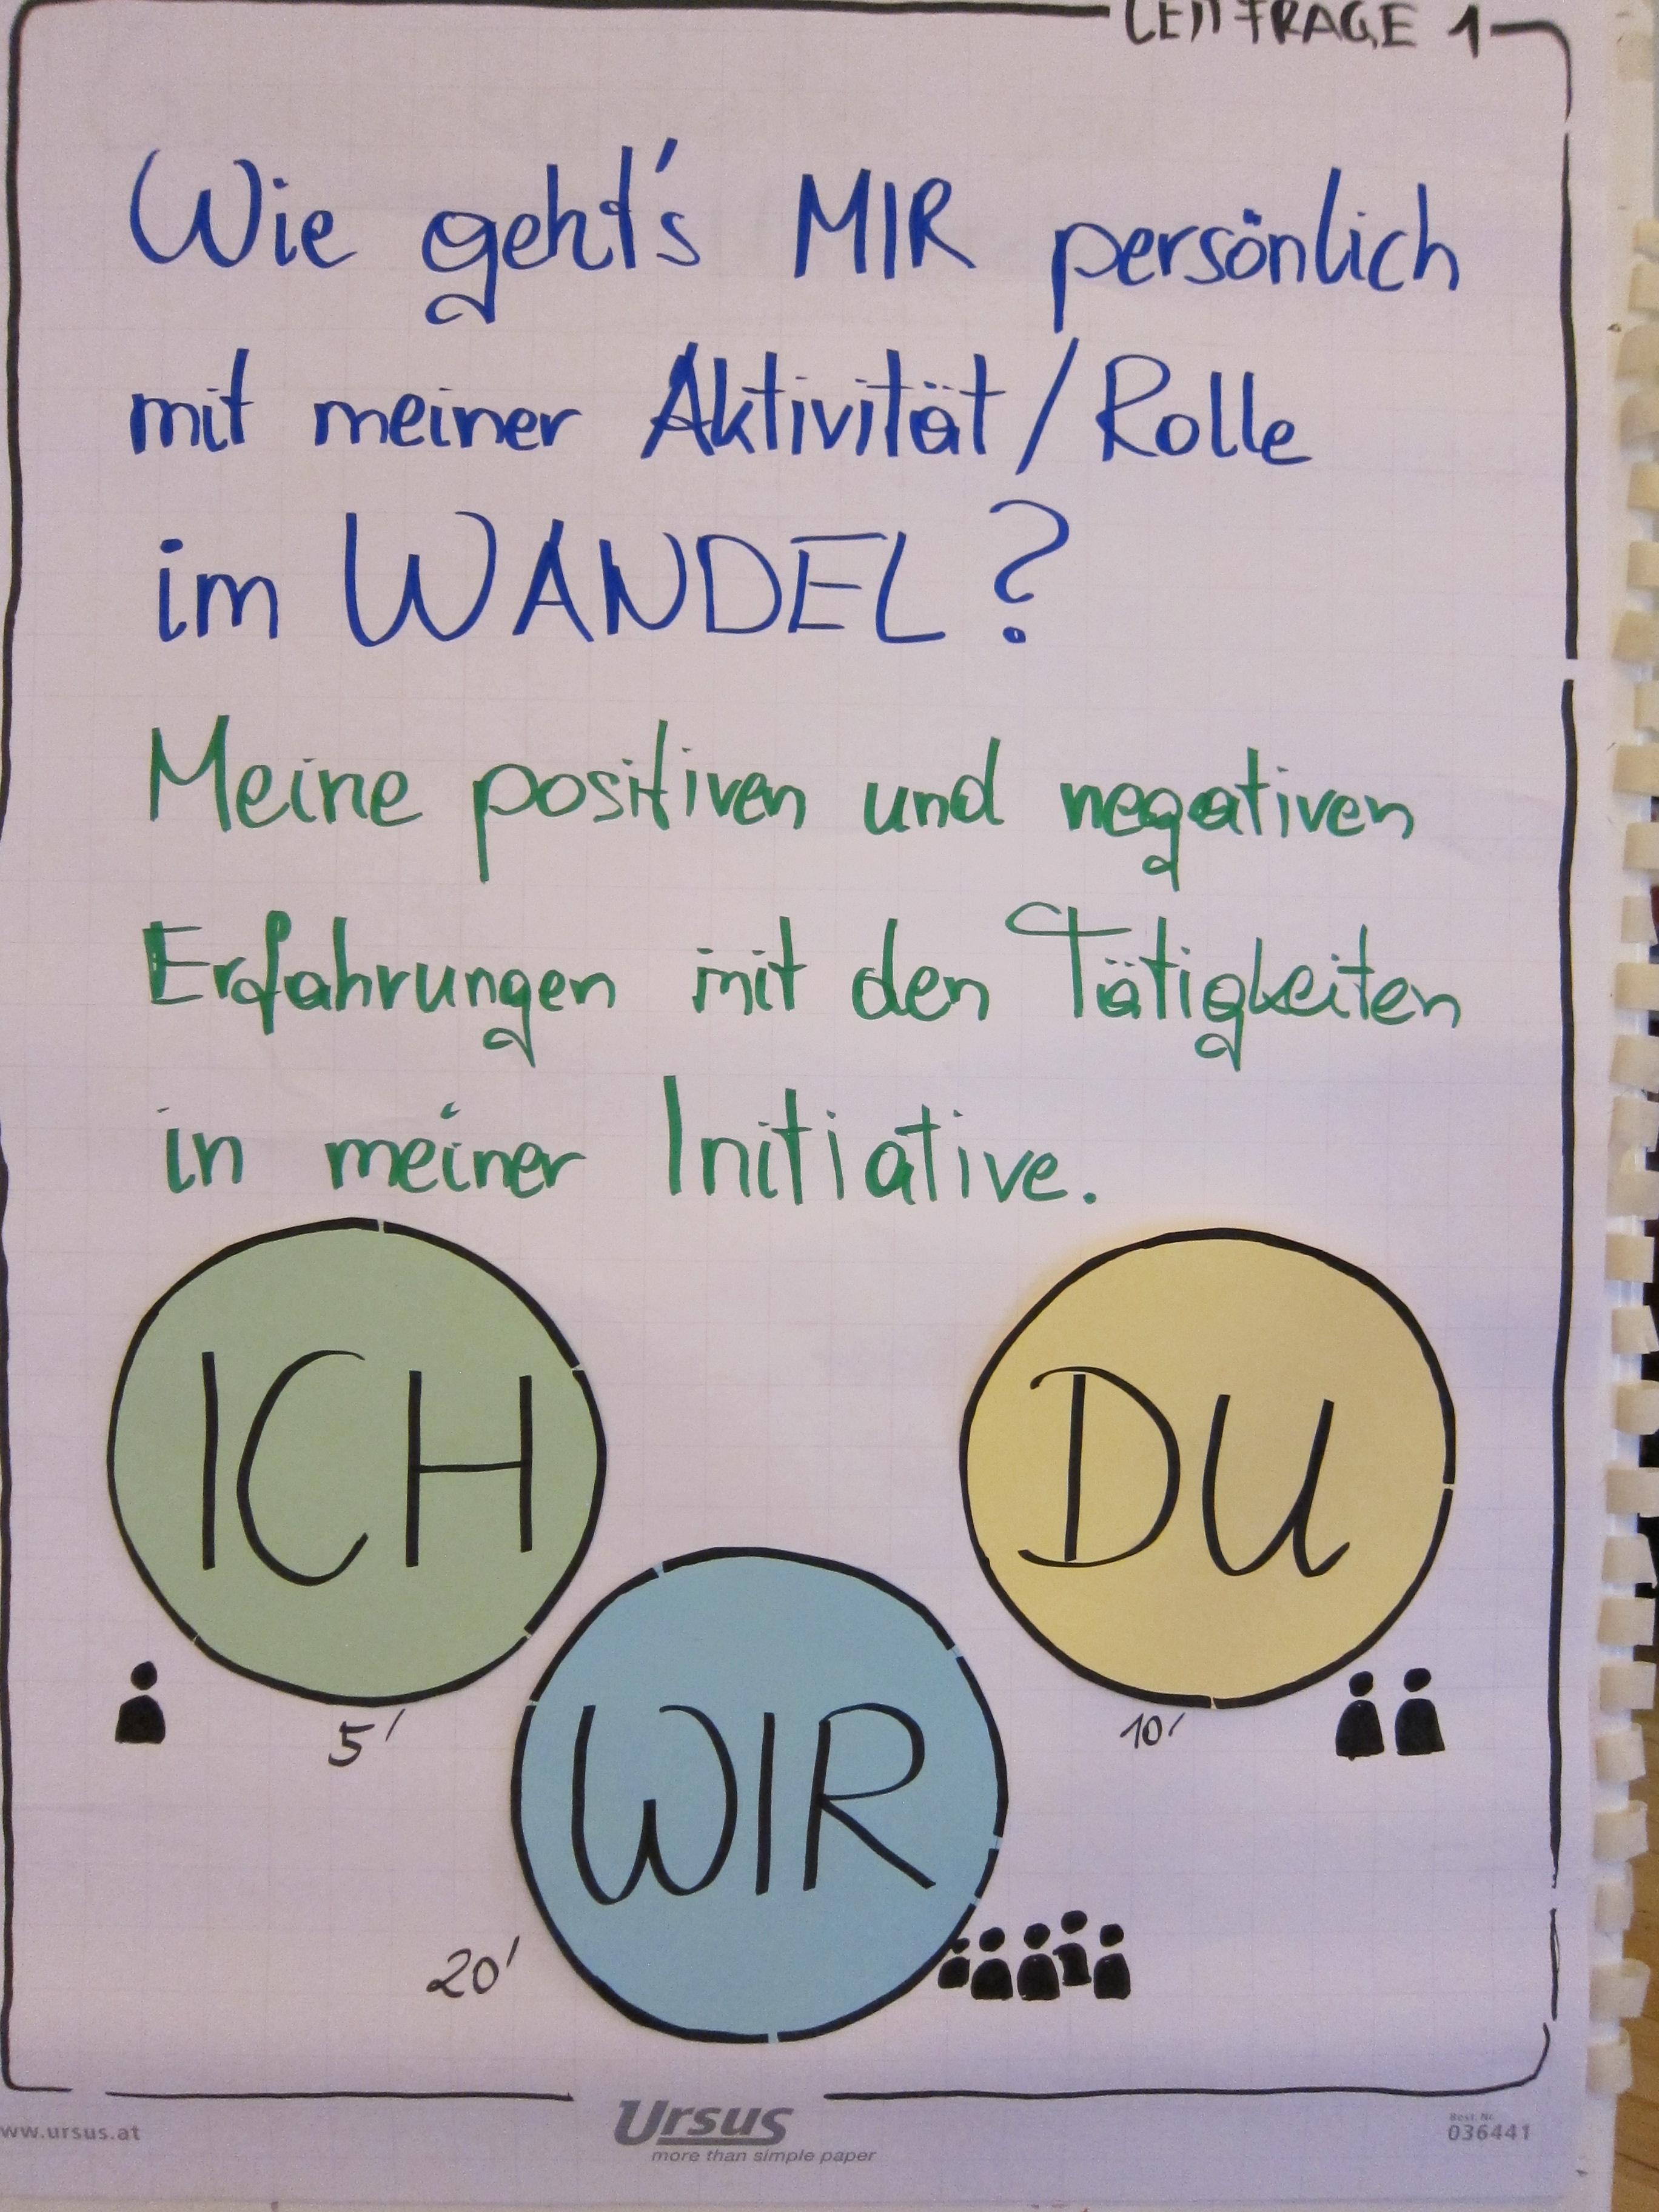 LEITFRAGE 1
Wie geht's MIR persönlich
mit meiner Aktivität/Rolle
im WANDEL?
Meine positiven und negativen
Erfahrungen mit den Tätigkeiten
in meiner Initiative.
ICH
DU
5'
10'
WIR
20'
ww.ursus.at
Ursus
more than simple paper
Best. Nr.
036441